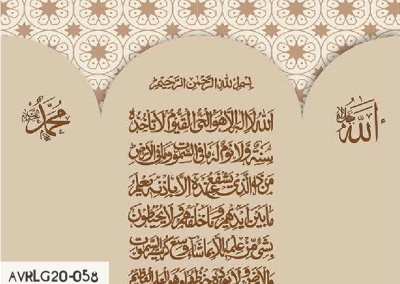 بسم الله الرحمن الرحيم
الله
محمد
الله لا اله الا هو الحي القيوم لا تاخذه
سنة ولا نوم له ما في السموات وما في الارض
من ذا الذي يشفع عنده الا باذنه يعلم
ما بين ايديهم وما خلفهم ولا يحيطون
بشيء من علمه الا بما شاء وسع كرسيه السموت
والارض ولا يؤده حفظهما وهو العلي العظيم
AVRLG20-058